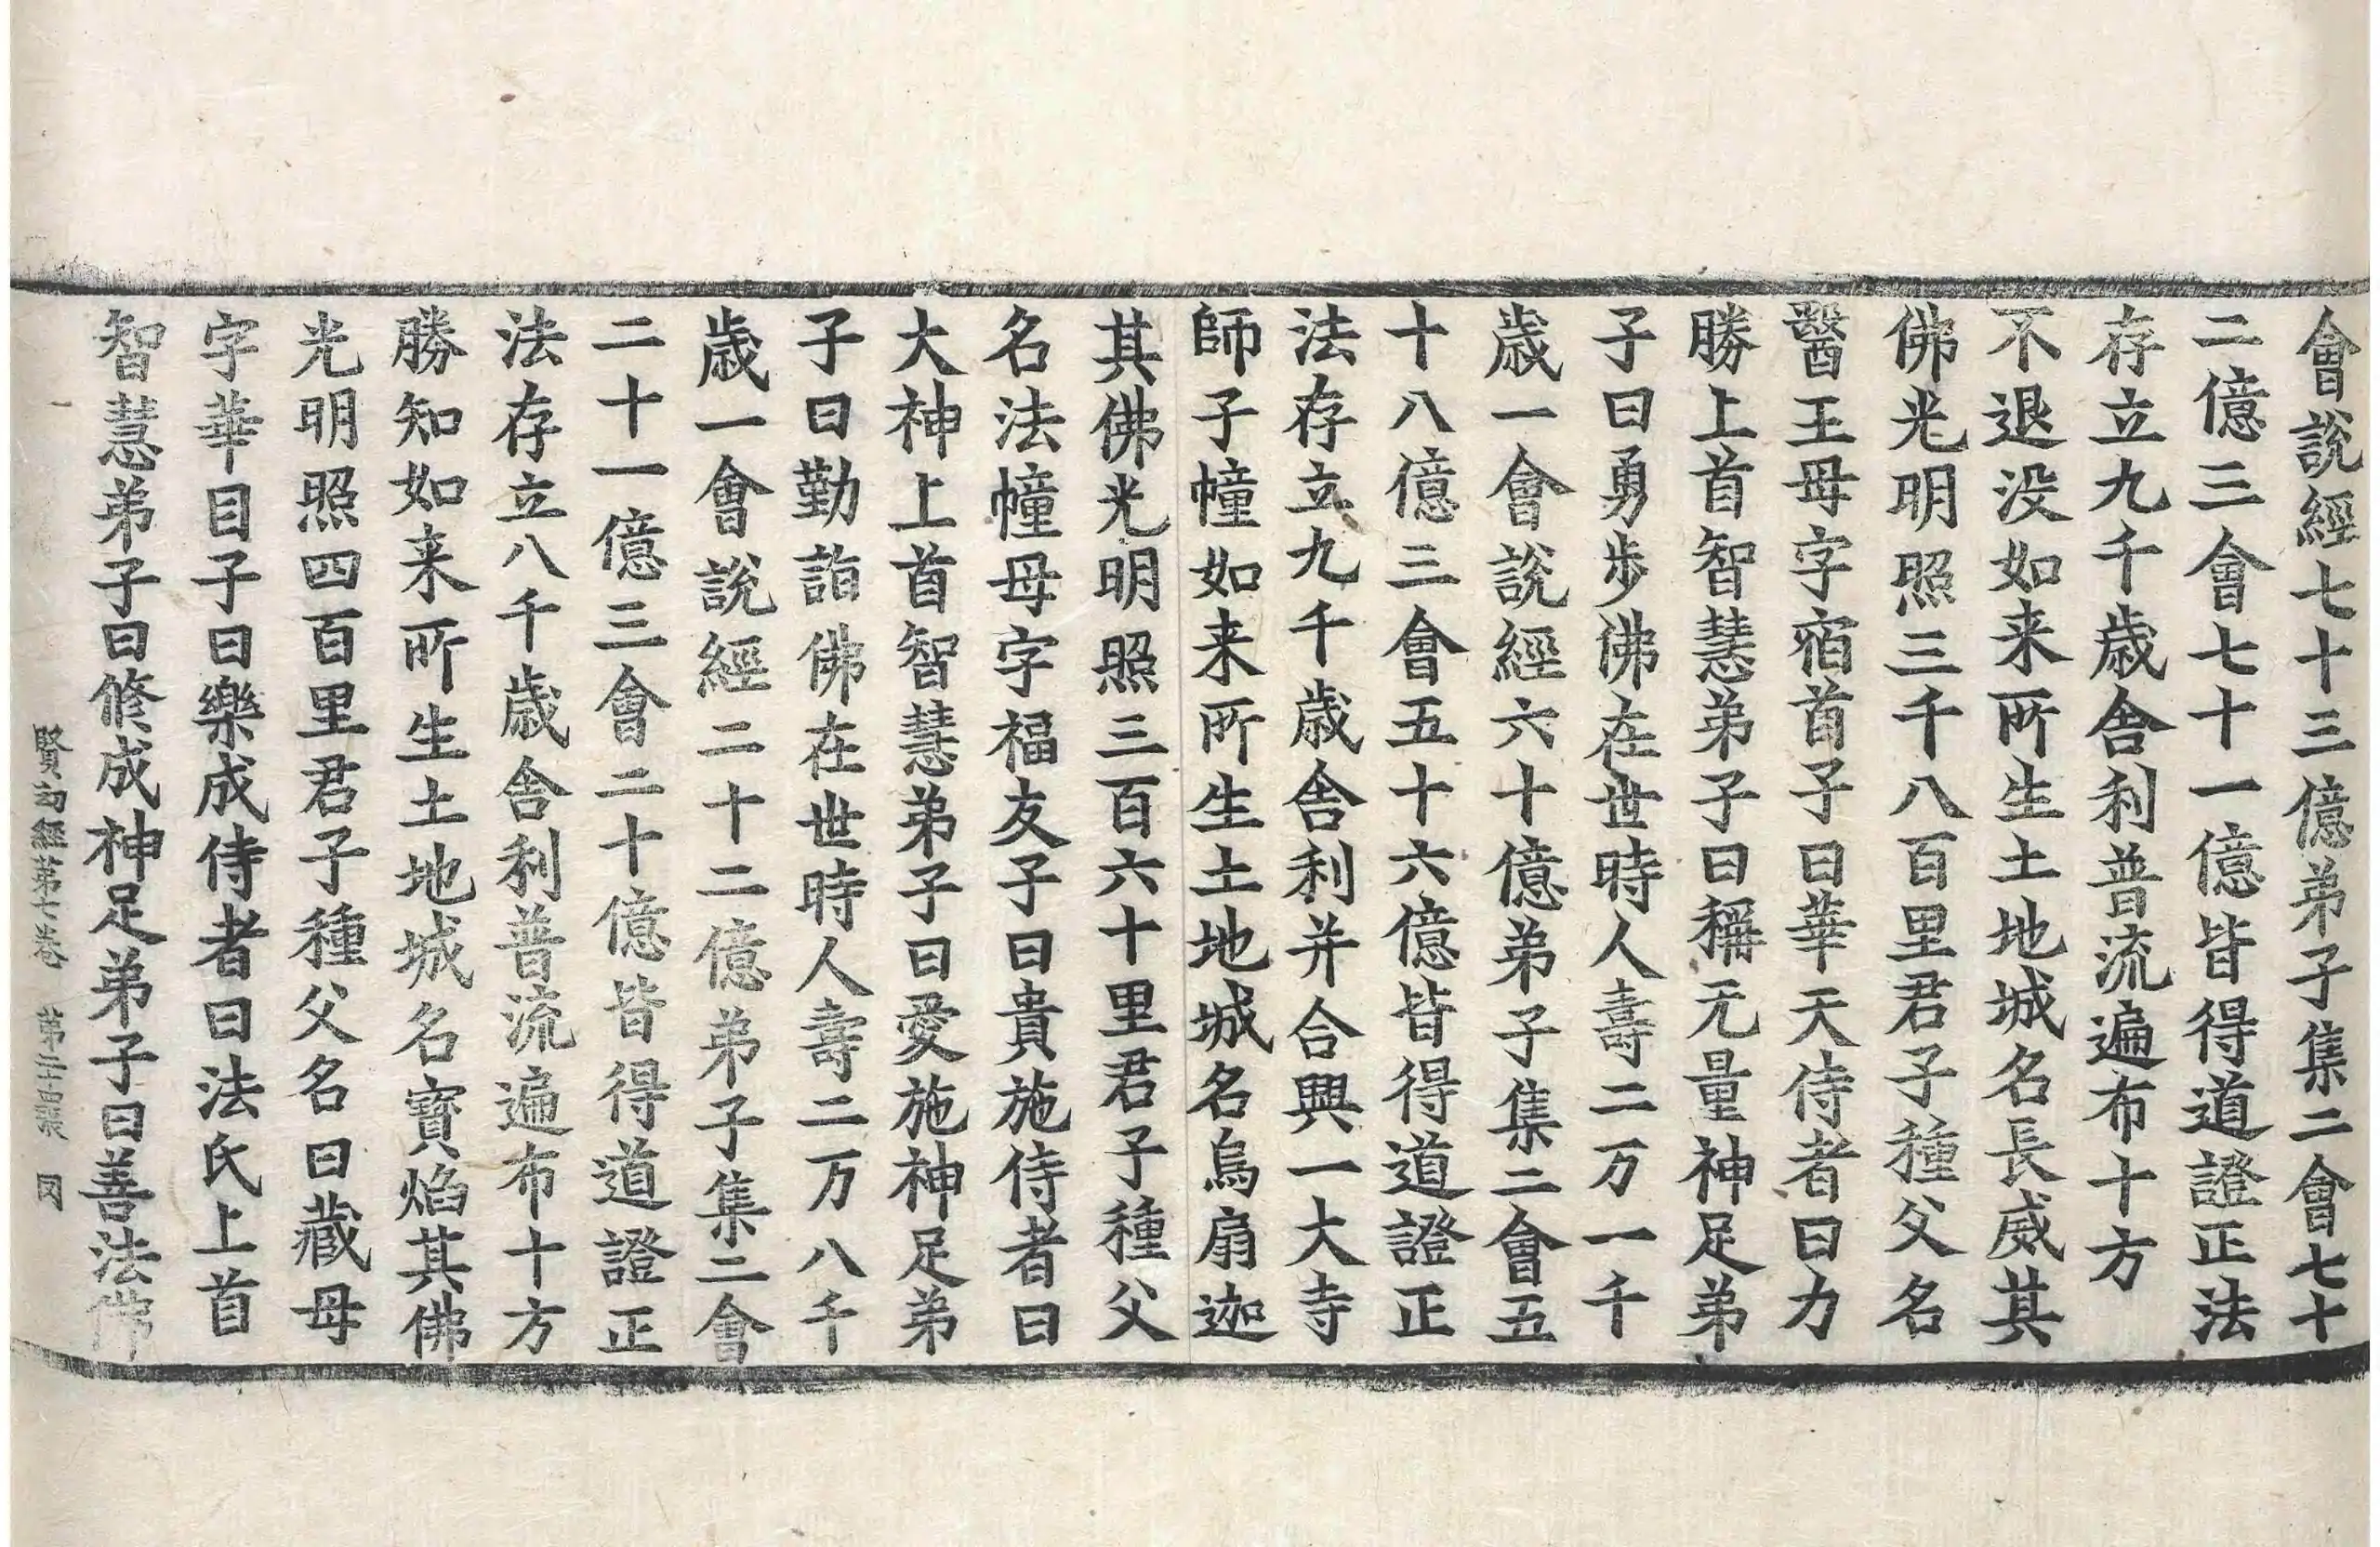 會說經七十三億弟子集二會七十
二億三會七十一億皆得道證正法
存立九千歲舍利普流遍布十方
不退没如来所生土地城名長威其
佛光明照三千八百里君子種父名
醫王母字宿首子曰華天侍者曰力
勝上首智慧弟子曰稱无量神足弟
子曰勇步佛在世時人壽二万一千
歲一會說經六十億弟子集二會五
十八億三會五十六億皆得道證正
法存立九千歲舍利并合興一大寺
師子幢如来所生土地城名烏扇迦
其佛光明照三百六十里君子種父
名法幢母字福友子曰貴施侍者曰
大神上首智慧弟子曰愛施神足弟
子曰勤詣佛在世時人壽二万八千
歲一會說經二十二億弟子集二會
二十一億三會二十億皆得道證正
法存立八千歲舍利普流遍布十方
勝知如来所生土地城名寶焰其佛
光明照四百里君子種父名曰藏母
字華目子曰樂成侍者曰法氏上首
智慧弟子曰修成神足弟子曰善法佛
賢劫經第七卷 第二十四張